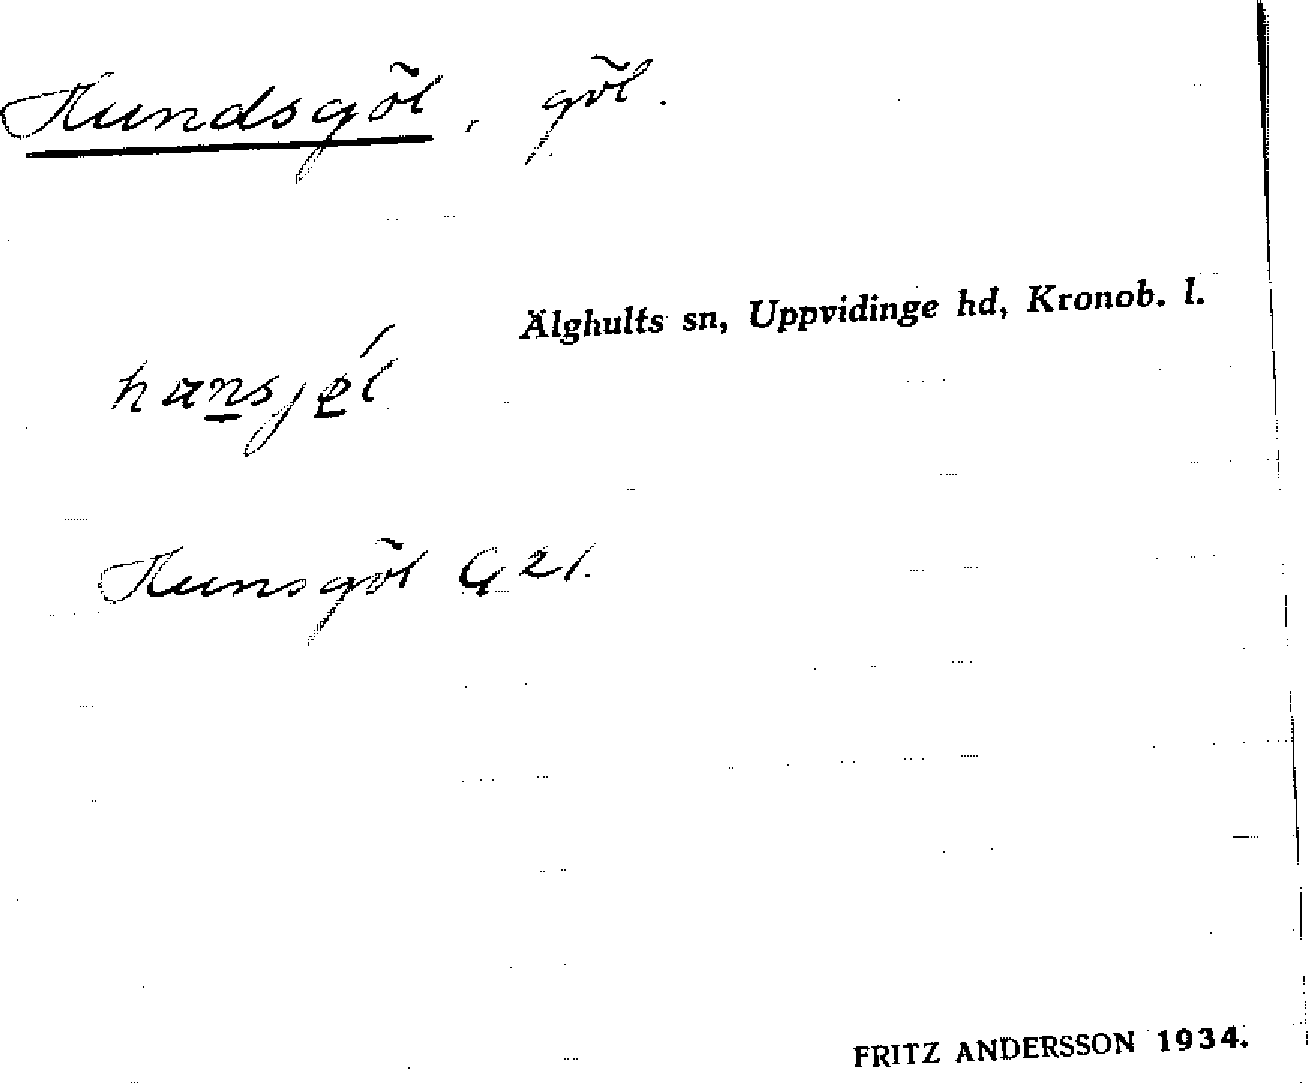 Hundsgöl, göl.
Älghults sn, Uppvidinge hd, Kronob. l.
hunsjél
Hunsgöl G 21.
FRITZ ANDERSSON 1934.